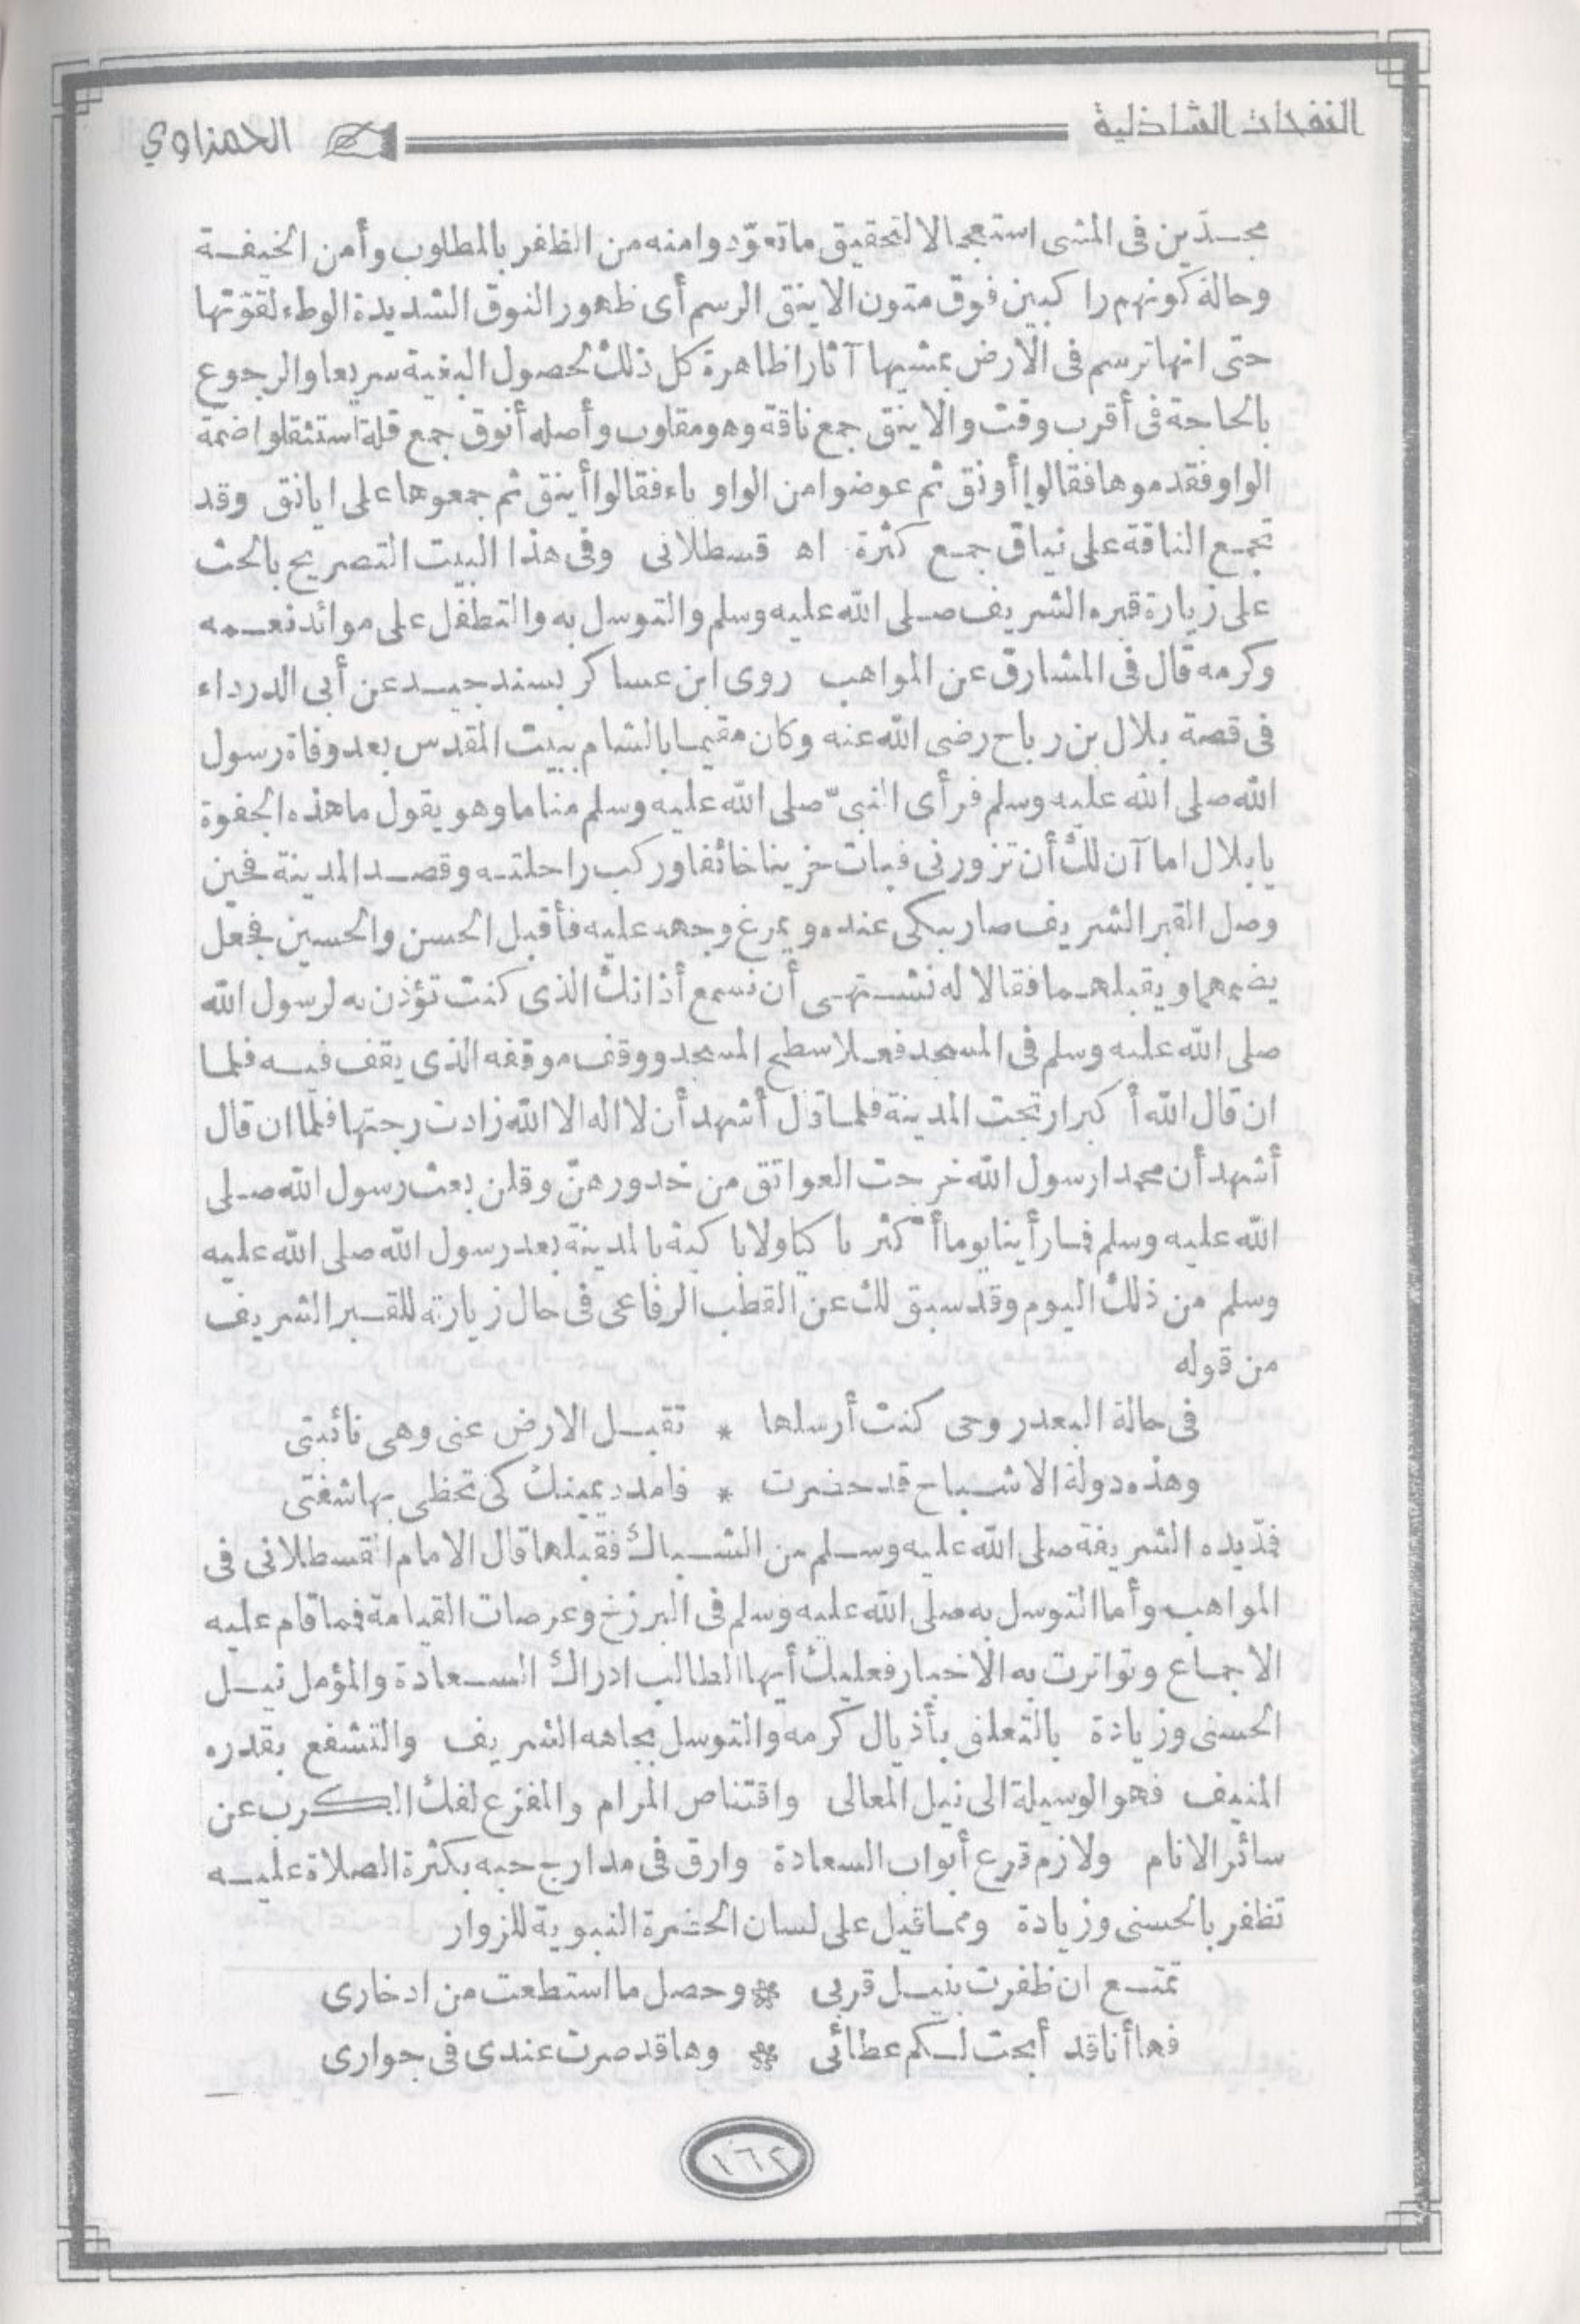 النفحات الشاذلية
الحمزاوي
مجدّين فى المشى استعجالا لتحقيق ما تعوّدوا منه من الظفر بالمطلوب وأمن الخيفة
وحالة كونهم راكبين فوق متون الاينق الرسم أى ظهور النوق الشديدة الوطء لقوّتها
حتى انها ترسم فى الارض بمشيها آثارا ظاهرة كل ذلك لحصول البغية سريعا والرجوع
بالحاجة فى أقرب وقت والاينق جمع ناقة وهو مقلوب وأصله أنوق جمع قلة استثقلوا ضمة
الواو فقدموها فقالوا أونق ثم عوضوا من الواو ياء فقالوا أينق ثم جمعوها على ايانق وقد
تجمع الناقة على نياق جمع كثرة اه قسطلانى وفى هذا البيت التصريح بالحث
على زيارة قبره الشريف صلى الله عليه وسلم والتوسل به والتطفل على موائد نعمه
وكرمه قال فى المشارق عن المواهب روى ابن عساكر بسند جيد عن أبى الدرداء
فى قصة بلال بن رباح رضى الله عنه وكان مقيما بالشام ببيت المقدس بعد وفاة رسول
الله صلى الله عليه وسلم فرأى النبىّ صلى الله عليه وسلم مناما وهو يقول ما هذه الجفوة
يا بلال اما آن لك أن تزورنى فبات حزينا خائفا وركب راحلته وقصد المدينة فحين
وصل القبر الشريف صار يبكى عنده ويمرغ وجهه عليه فأقبل الحسن والحسين فجعل
يضمهما ويقبلهما فقالا له نشتهى أن نسمع أذانك الذى كنت تؤذن به لرسول الله
صلى الله عليه وسلم فى المسجد فعلا سطح المسجد ووقف موقفه الذى يقف فيه فلما
ان قال الله أكبر ارتجت المدينة فلما قال أشهد أن لا اله الا الله زادت رجتها فلما ان قال
أشهد أن محمدا رسول الله خرجت العواتق من خدورهنّ وقلن بعث رسول الله صلى
الله عليه وسلم فما رأينا يوما أكثر باكيا ولا باكية بالمدينة بعد رسول الله صلى الله عليه
وسلم من ذلك اليوم وقد سبق لك عن القطب الرفاعى فى حال زيارته للقبر الشريف
من قوله
فى حالة البعد روحى كنت أرسلها * تقبل الارض عنى وهى نائبتى
وهذه دولة الاشباح قد حضرت * فامدد يمينك كى تحظى بها شفتى
فمدّ يده الشريفة صلى الله عليه وسلم من الشباك فقبلها قال الامام القسطلانى فى
المواهب وأما التوسل به صلى الله عليه وسلم فى البرزخ وعرصات القيامة فما قام عليه
الاجماع وتواترت به الاخبار فعليك أيها الطالب ادراك السعادة والمؤمل نيل
الحسنى وزيادة بالتعلق بأذيال كرمه والتوسل بجاهه الشريف والتشفع بقدره
المنيف فهو الوسيلة الى نيل المعالى واقتناص المرام والمفزع لفك الكرب عن
سائر الانام ولازم قرع أبواب السعادة وارق فى مدارج حبه بكثرة الصلاة عليه
تظفر بالحسنى وزيادة ومما قيل على لسان الحضرة النبوية للزوار
تمتع ان ظفرت بنيل قربى * وحصل ما استطعت من ادخارى
فها أنا قد أبحت لكم عطائى * وها قد صرت عندى فى جوارى
١٦٢